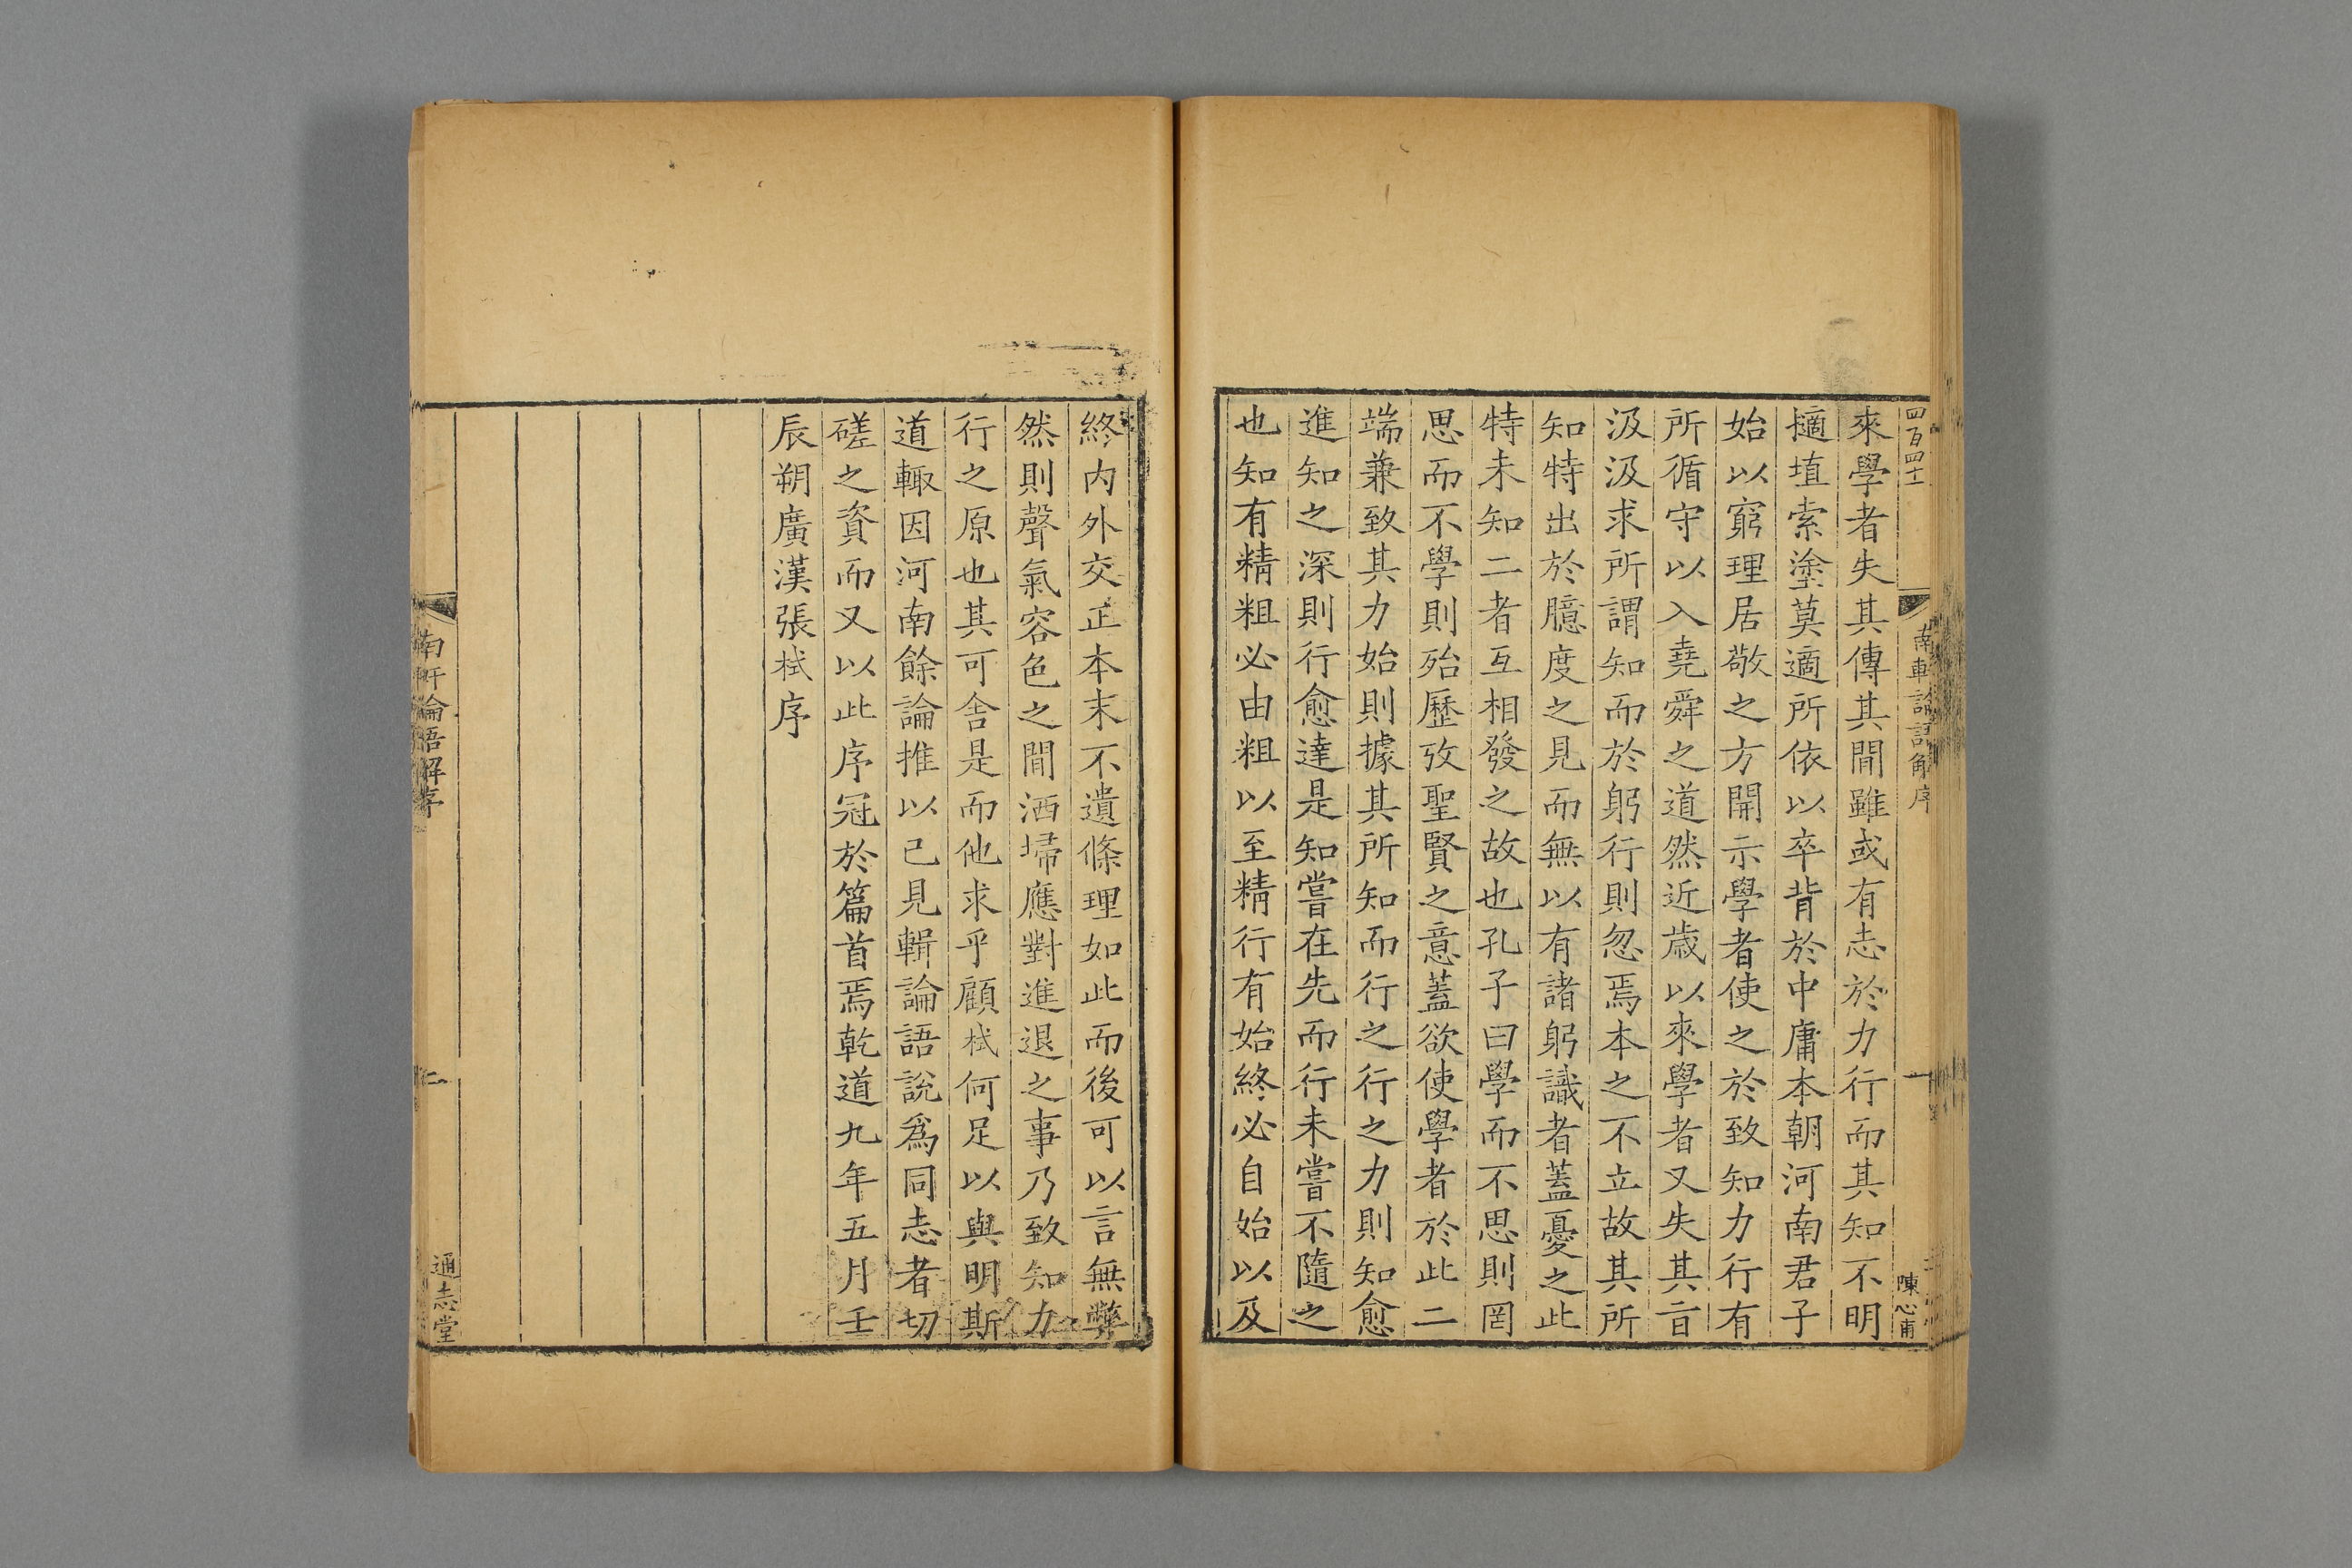 四百四十
南軒論語解序
一
陳心甫
來學者失其傳其間雖或有志於力行而其知不明
擿埴索塗莫適所依以卒背於中庸本朝河南君子
始以窮理居敬之方開示學者使之於致知力行有
所循守以入堯舜之道然近歲以來學者又失其㫖
汲汲求所謂知而於躬行則忽焉本之不立故其所
知特出於臆度之見而無以有諸躬識者蓋憂之此
特未知二者互相發之故也孔子曰學而不思則罔
思而不學則殆歷攷聖賢之意蓋欲使學者於此二
端兼致其力始則據其所知而行之行之力則知愈
進知之深則行愈達是知嘗在先而行未嘗不隨之
也知有精粗必由粗以至精行有始終必自始以及
終内外交正本末不遺條理如此而後可以言無弊
然則聲氣容色之間洒埽應對進退之事乃致知力
行之原也其可舍是而他求乎顧栻何足以與明斯
道輒因河南餘論推以己見輯論語說爲同志者切
磋之資而又以此序冠於篇首焉乾道九年五月壬
辰朔廣漢張栻序
南軒論語解序
二
通志堂